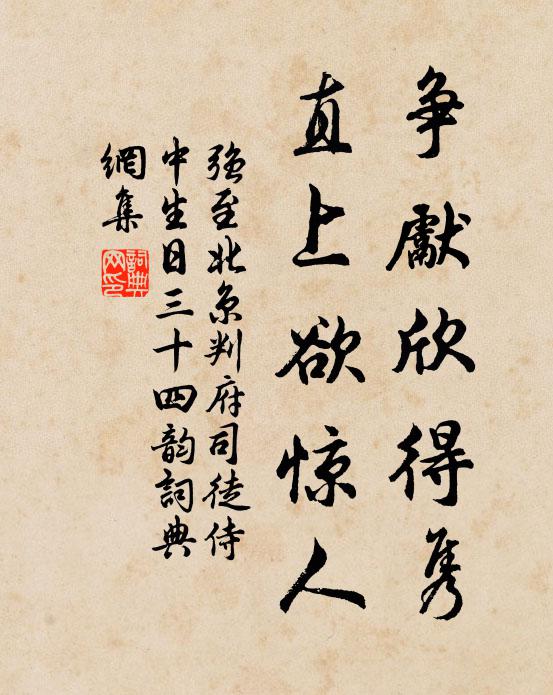 争獻欣得隽
直上欲惊人
強至北京判府司徒侍
中生日三十四韵詞典
網集
詞典
网印